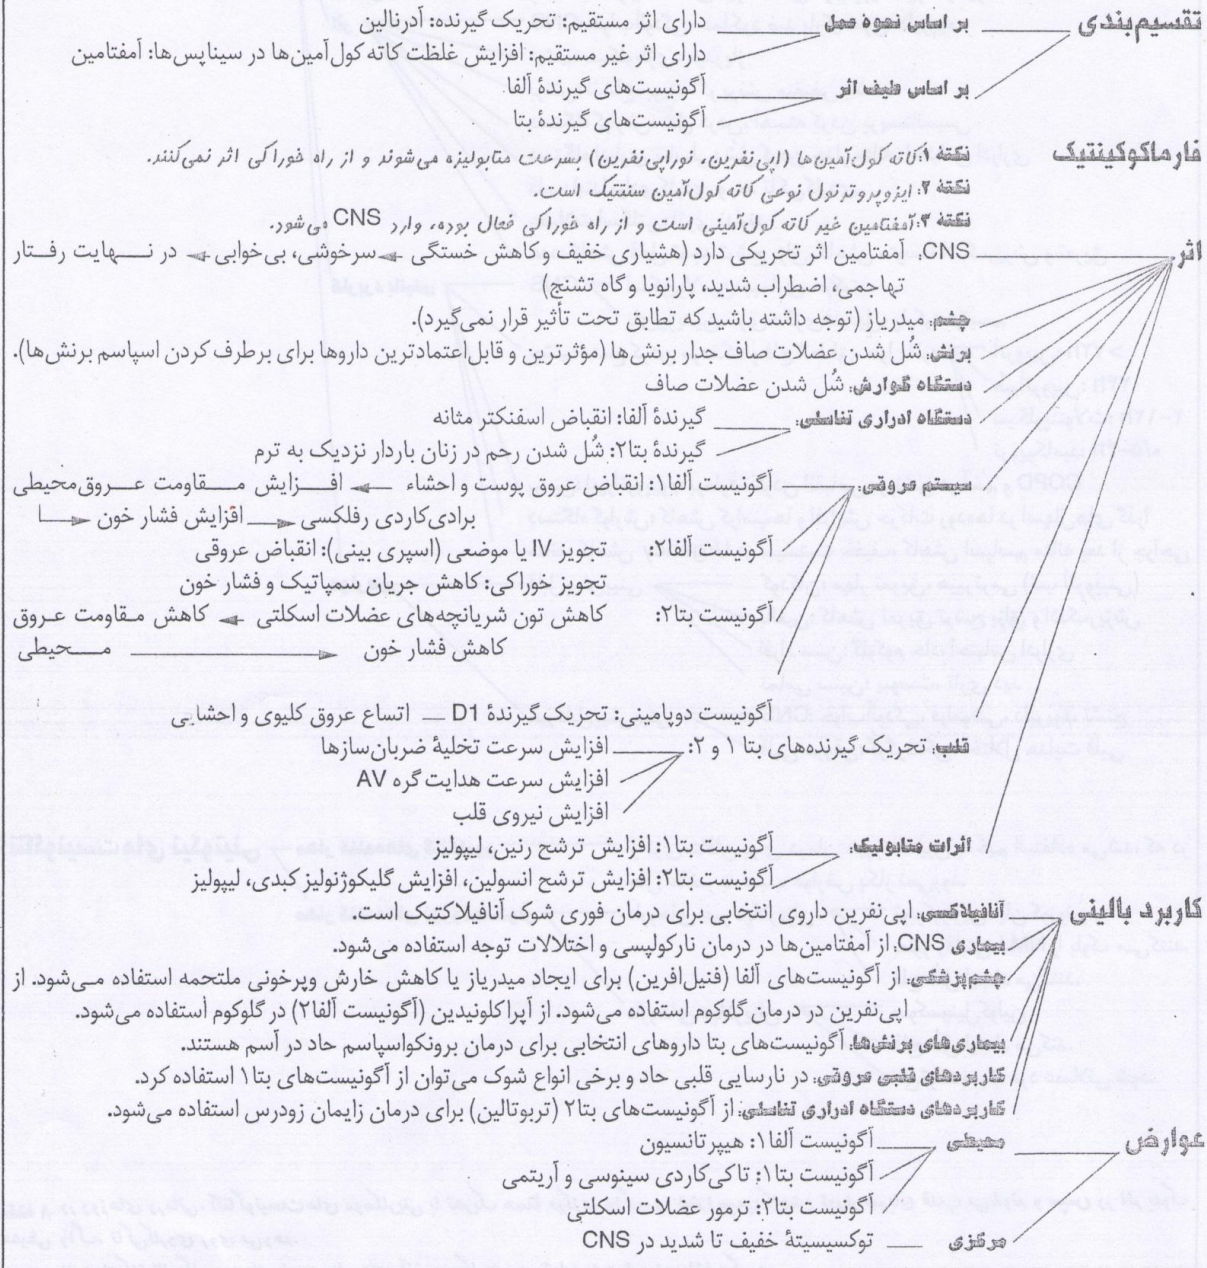 تقسیم‌بندی بر اساس نحوه عمل دارای اثر مستقیم: تحریک گیرنده: آدرنالین
دارای اثر غیر مستقیم: افزایش غلظت کاته کول‌آمین‌ها در سیناپس‌ها: آمفتامین
بر اساس طیف اثر آگونیست‌های گیرندهٔ آلفا
آگونیست‌های گیرندهٔ بتا
فارماکوکینتیک نکتهٔ ۱: کاته کول‌آمین‌ها (اپی‌نفرین، نوراپی‌نفرین) بسرعت متابولیزه می‌شوند و از راه خوراکی اثر نمی‌کنند.
نکتهٔ ۲: ایزوپروترنول نوعی کاته کول‌آمین سنتتیک است.
نکتهٔ ۳: آمفتامین غیر کاته کول‌آمینی است و از راه خوراکی فعال بوده، وارد CNS می‌شود.
اثر CNS: آمفتامین اثر تحریکی دارد (هشیاری خفیف و کاهش خستگی ← سرخوشی، بی‌خوابی ← در نهایت رفتار
تهاجمی، اضطراب شدید، پارانویا و گاه تشنج)
چشم: میدریاز (توجه داشته باشید که تطابق تحت تأثیر قرار نمی‌گیرد).
برنش: شُل شدن عضلات صاف جدار برنش‌ها (مؤثرترین و قابل‌اعتمادترین داروها برای برطرف کردن اسپاسم برنش‌ها).
دستگاه گوارش: شُل شدن عضلات صاف
دستگاه ادراری تناسلی: گیرندهٔ آلفا: انقباض اسفنکتر مثانه
گیرندهٔ بتا۲: شُل شدن رحم در زنان باردار نزدیک به ترم
سیستم عروقی: آگونیست آلفا۱: انقباض عروق پوست و احشاء ← افزایش مقاومت عروق‌محیطی
برادی‌کاردی رفلکسی ← افزایش فشار خون ←
آگونیست آلفا۲: تجویز IV یا موضعی (اسپری بینی): انقباض عروقی
تجویز خوراکی: کاهش جریان سمپاتیک و فشار خون
آگونیست بتا۲: کاهش تون شریانچه‌های عضلات اسکلتی ← کاهش مقاومت عروق
کاهش فشار خون ← محیطی
آگونیست دوپامینی: تحریک گیرندهٔ D1 _ اتساع عروق کلیوی و احشایی
قلب: تحریک گیرنده‌های بتا ۱ و ۲: افزایش سرعت تخلیهٔ ضربان‌سازها
افزایش سرعت هدایت گره AV
افزایش نیروی قلب
اثرات متابولیک آگونیست بتا۱: افزایش ترشح رنین، لیپولیز
آگونیست بتا۲: افزایش ترشح انسولین، افزایش گلیکوژنولیز کبدی، لیپولیز
کاربرد بالینی آنافیلاکسی: اپی‌نفرین داروی انتخابی برای درمان فوری شوک آنافیلاکتیک است.
بیماری CNS: از آمفتامین‌ها در درمان نارکولپسی و اختلالات توجه استفاده می‌شود.
چشم‌پزشکی: از آگونیست‌های آلفا (فنیل‌افرین) برای ایجاد میدریاز یا کاهش خارش وپرخونی ملتحمه استفاده می‌شود. از
اپی‌نفرین در درمان گلوکوم استفاده می‌شود. از آپراکلونیدین (آگونیست آلفا۲) در گلوکوم استفاده می‌شود.
بیماری‌های برنش‌ها: آگونیست‌های بتا داروهای انتخابی برای درمان برونکواسپاسم حاد در آسم هستند.
کاربردهای قلبی عروقی: در نارسایی قلبی حاد و برخی انواع شوک می‌توان از آگونیست‌های بتا۱ استفاده کرد.
کاربردهای دستگاه ادراری تناسلی: از آگونیست‌های بتا۲ (تربوتالین) برای درمان زایمان زودرس استفاده می‌شود.
عوارض محیطی آگونیست آلفا۱: هیپرتانسیون
آگونیست بتا۱: تاکی‌کاردی سینوسی و آریتمی
آگونیست بتا۲: ترمور عضلات اسکلتی
مرکزی توکسیسیتهٔ خفیف تا شدید در CNS